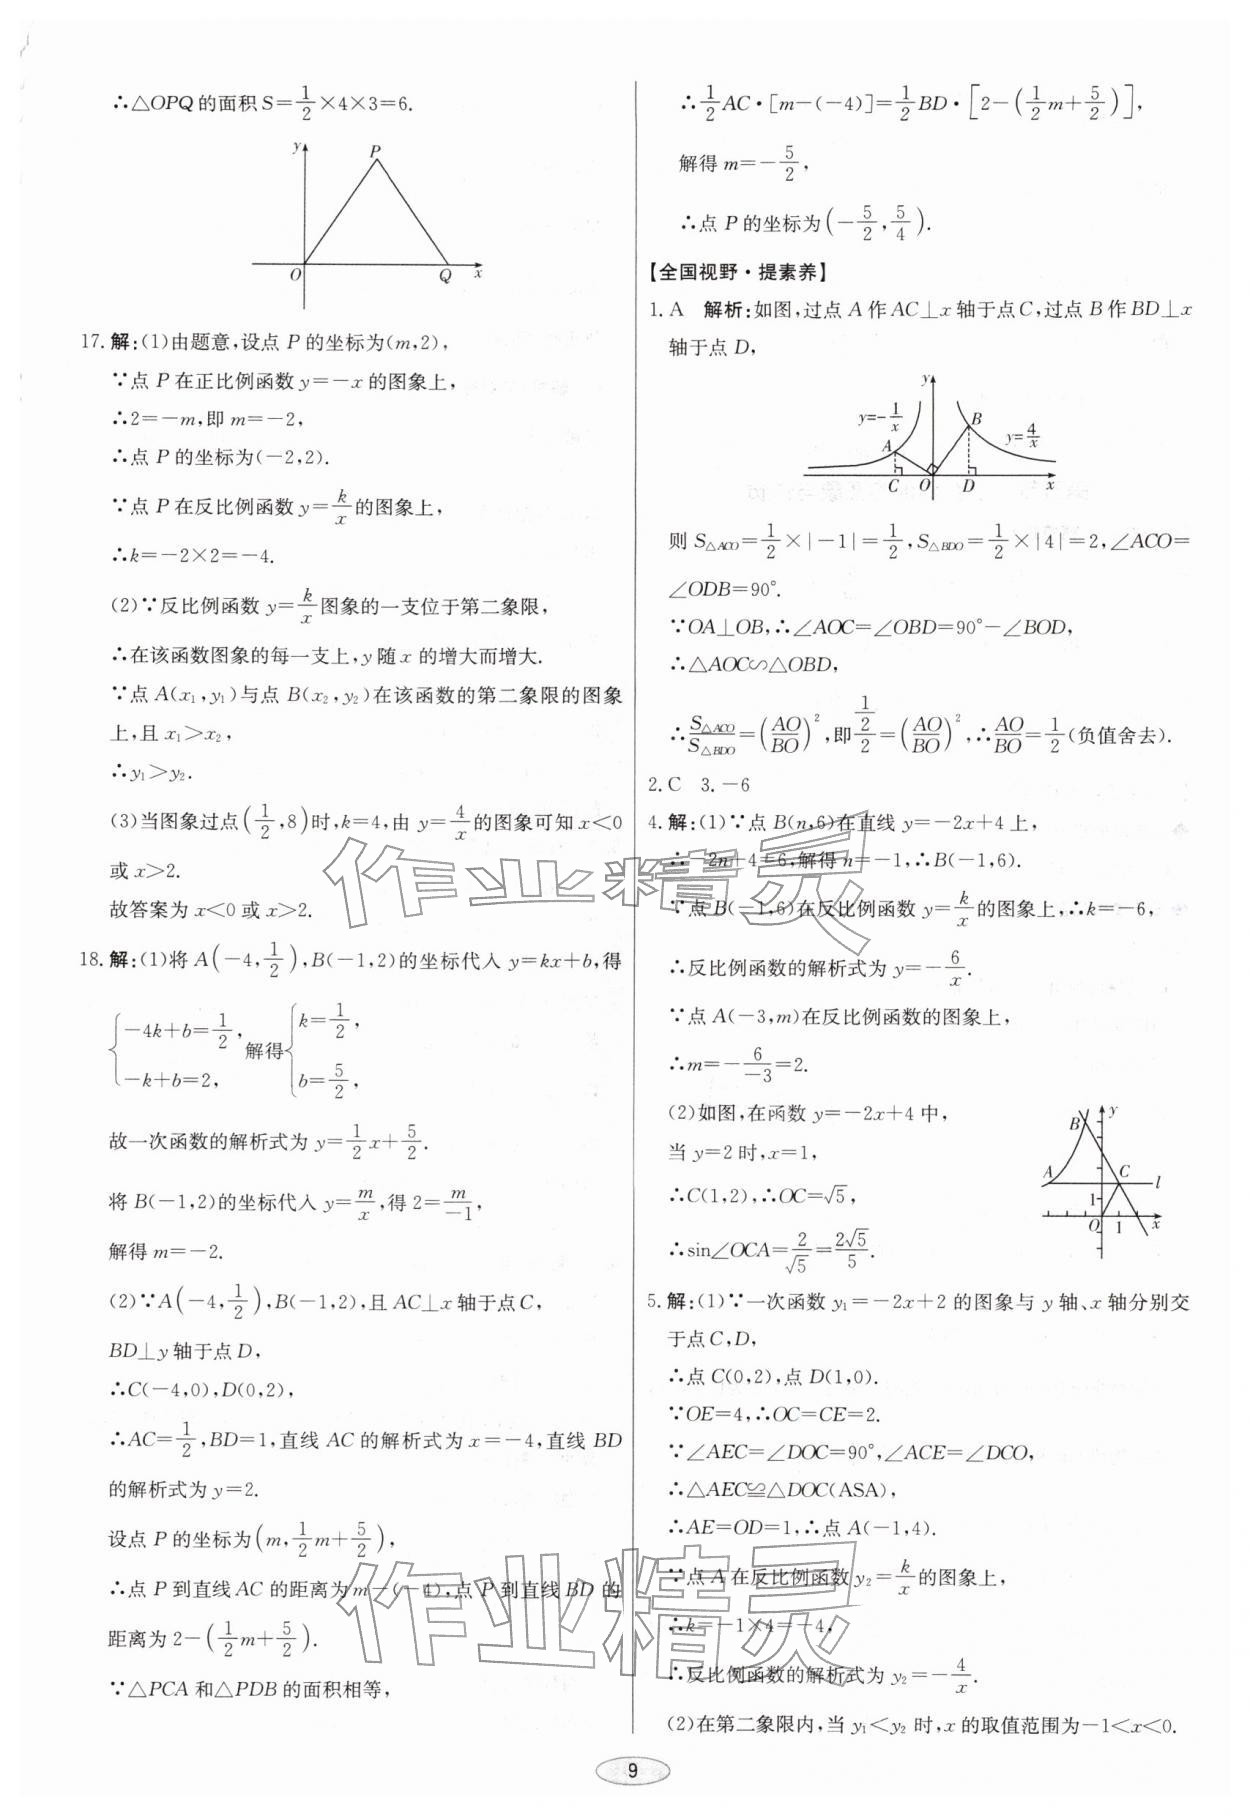 ∴△OPQ的面积S=1/2×4×3=6.
y
P
O
Q
x
17. 解:(1)由题意,设点 P 的坐标为(m,2),
∵点 P 在正比例函数 y=-x 的图象上,
∴2=-m,即 m=-2,
∴点 P 的坐标为(-2,2).
∵点 P 在反比例函数 y=k/x 的图象上,
∴k=-2×2=-4.
(2)∵反比例函数 y=k/x 图象的一支位于第二象限,
∴在该函数图象的每一支上,y 随 x 的增大而增大.
∵点 A(x₁,y₁)与点 B(x₂,y₂)在该函数的第二象限的图象
上,且 x₁>x₂,
∴y₁>y₂.
(3)当图象过点(1/2,8)时,k=4,由 y=4/x 的图象可知 x<0
或 x>2.
故答案为 x<0 或 x>2.
18. 解:(1)将 A(-4,1/2),B(-1,2)的坐标代入 y=kx+b,得
{-4k+b=1/2, -k+b=2, 解得{k=1/2, b=5/2,
故一次函数的解析式为 y=1/2x+5/2.
将 B(-1,2)的坐标代入 y=m/x,得 2=m/-1,
解得 m=-2.
(2)∵A(-4,1/2),B(-1,2),且 AC⊥x 轴于点 C,
BD⊥y 轴于点 D,
∴C(-4,0),D(0,2),
∴AC=1/2,BD=1,直线 AC 的解析式为 x=-4,直线 BD
的解析式为 y=2.
设点 P 的坐标为(m,1/2m+5/2),
∴点 P 到直线 AC 的距离为 m-(-4),点 P 到直线 BD 的
距离为 2-(1/2m+5/2).
∵△PCA 和△PDB 的面积相等,
∴1/2AC·[m-(-4)]=1/2BD·[2-(1/2m+5/2)],
解得 m=-5/2,
∴点 P 的坐标为(-5/2,5/4).
【全国视野·提素养】
1. A 解析:如图,过点 A 作 AC⊥x 轴于点 C,过点 B 作 BD⊥x
轴于点 D,
y
y=-1/x
B
y=4/x
A
C O D x
则 S△ACO=1/2×|-1|=1/2,S△BDO=1/2×|4|=2,∠ACO=
∠ODB=90°.
∵OA⊥OB,∴∠AOC=∠OBD=90°-∠BOD,
∴△AOC∽△OBD,
∴S△ACO/S△BDO=(AO/BO)²,即(1/2)/2=(AO/BO)²,∴AO/BO=1/2(负值舍去).
2. C 3. -6
4. 解:(1)∵点 B(n,6)在直线 y=-2x+4 上,
∴-2n+4=6,解得 n=-1,∴B(-1,6).
∵点 B(-1,6)在反比例函数 y=k/x 的图象上,∴k=-6,
∴反比例函数的解析式为 y=-6/x.
∵点 A(-3,m)在反比例函数的图象上,
∴m=-6/-3=2.
(2)如图,在函数 y=-2x+4 中,
当 y=2 时,x=1,
∴C(1,2),∴OC=√5,
∴sin∠OCA=2/√5=2√5/5.
y
B
A
C
l
1
O 1 x
5. 解:(1)∵一次函数 y₁=-2x+2 的图象与 y 轴、x 轴分别交
于点 C,D,
∴点 C(0,2),点 D(1,0).
∵OE=4,∴OC=CE=2.
∵∠AEC=∠DOC=90°,∠ACE=∠DCO,
∴△AEC≌△DOC(ASA),
∴AE=OD=1,∴点 A(-1,4).
∵点 A 在反比例函数 y₂=k/x 的图象上,
∴k=-1×4=-4,
∴反比例函数的解析式为 y₂=-4/x.
(2)在第二象限内,当 y₁<y₂ 时,x 的取值范围为-1<x<0.
作业精灵
作业精灵
9